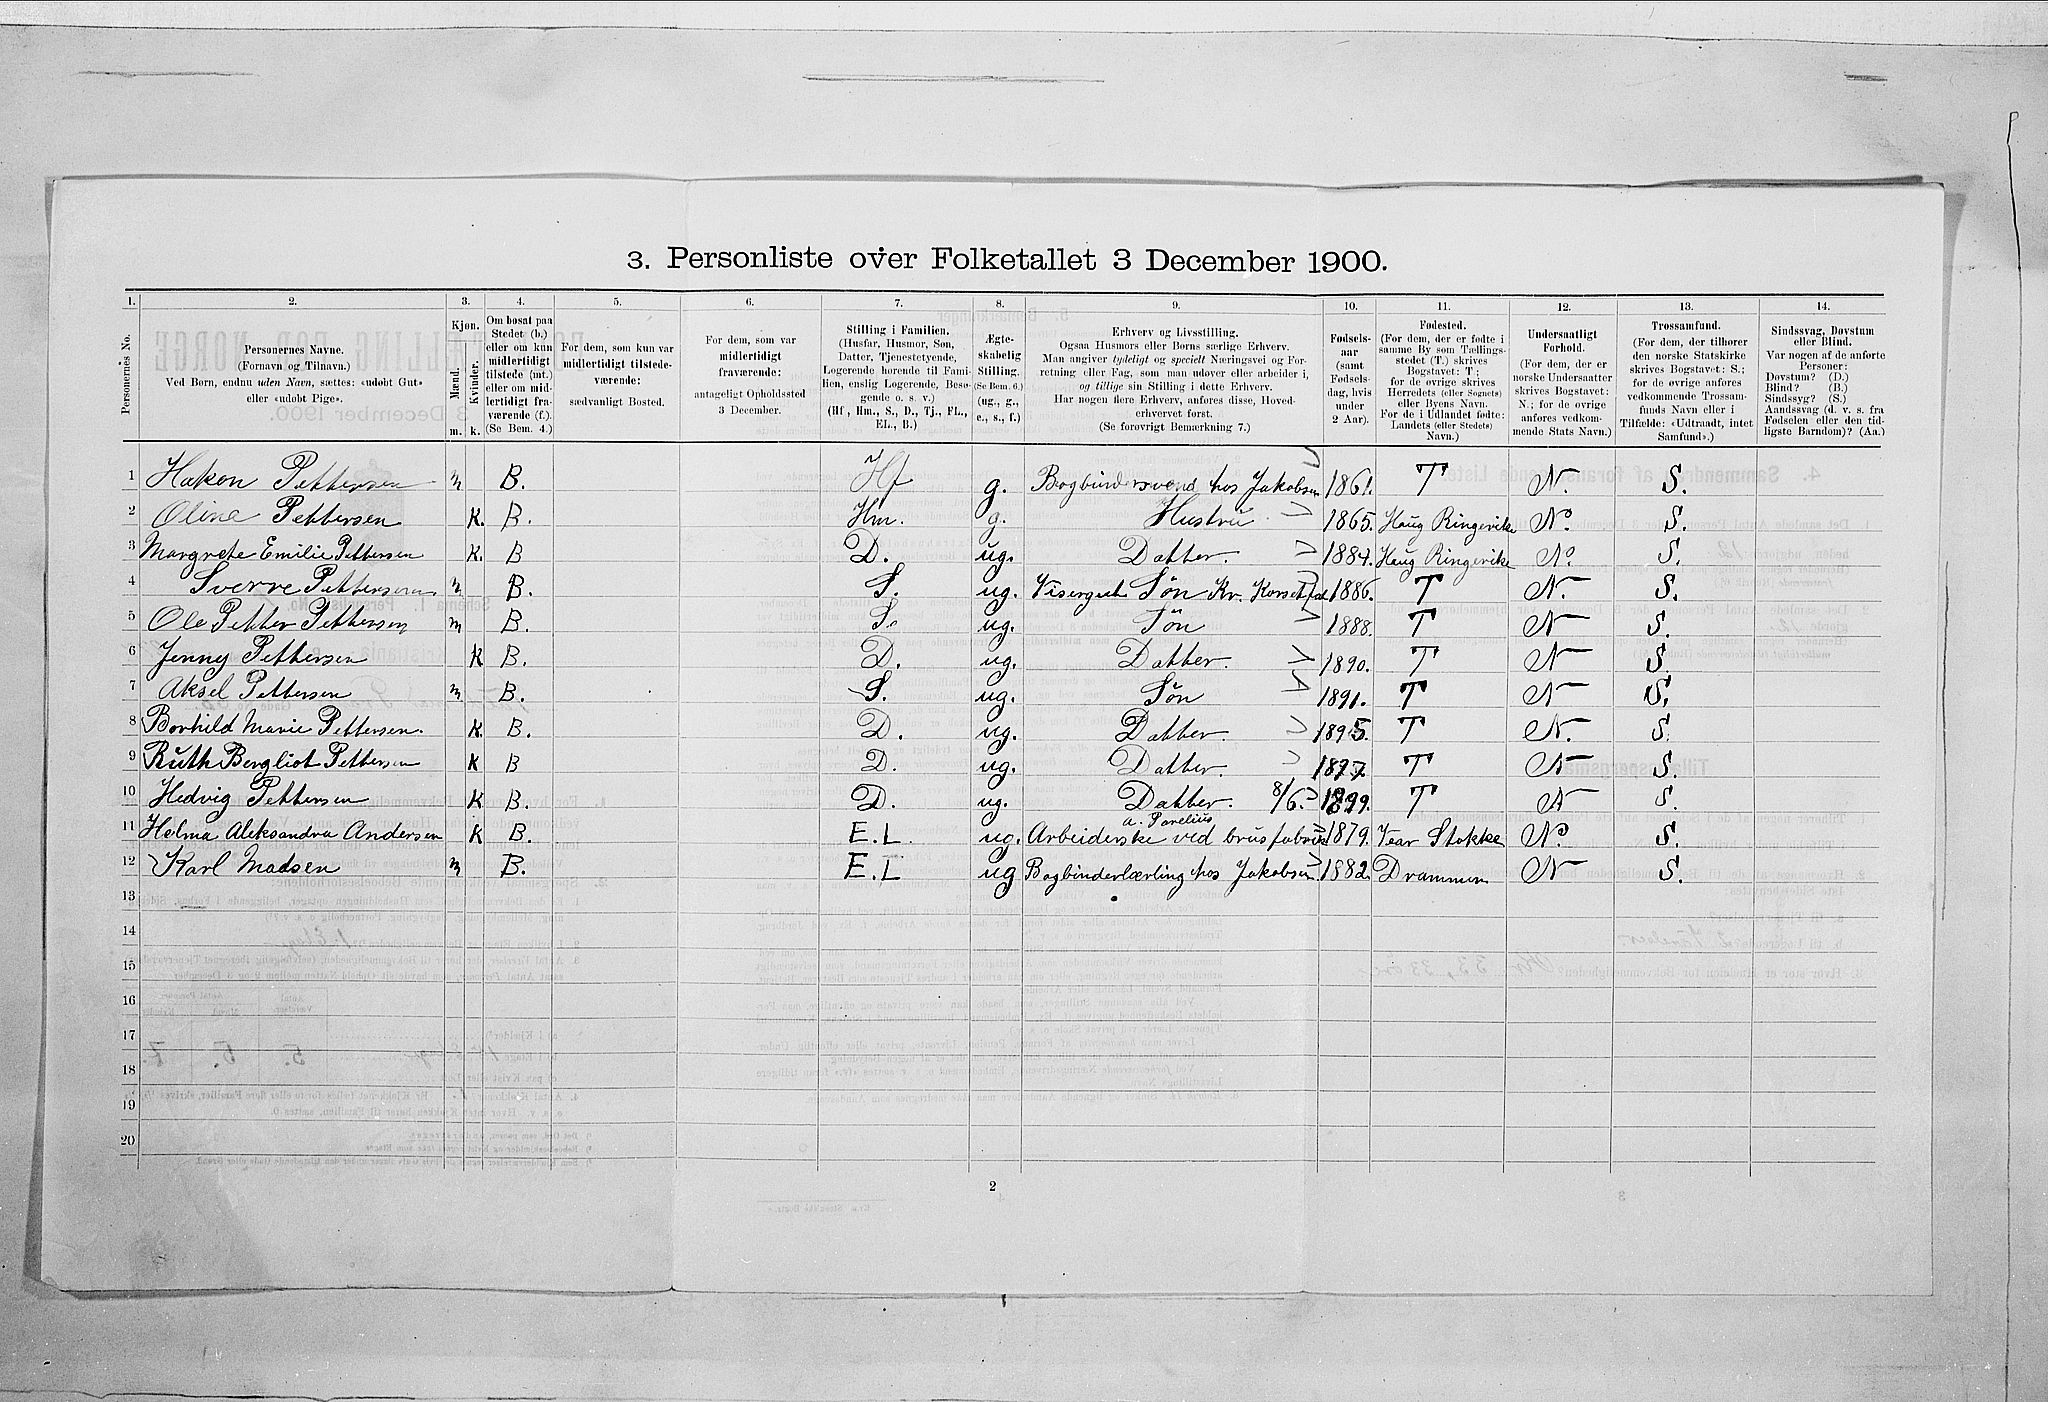 3. Personliste over Folketallet 3 December 1900.
1. 2. 3. 4. 5. 6. 7. 8. 9. 10. 11. 12. 13. 14.
Personernes No.
Personernes Navne.
(Fornavn og Tilnavn.)
Ved Børn, endnu uden Navn, sættes: «udøbt Gut»
eller «udøbt Pige».
Kjøn.
Mænd.
Kvinder.
m. k.
Om bosat paa
Stedet (b.)
eller om kun
midlertidigt
tilstede (mt.)
eller om mid-
lertidigt fra-
værende (f.).
(Se Bem. 4.)
For dem, som kun var
midlertidigt tilstede-
værende:
sædvanligt Bosted.
For dem, som var
midlertidigt
fraværende:
antageligt Opholdssted
3 December.
Stilling i Familien.
(Husfar, Husmor, Søn,
Datter, Tjenestetyende,
Logerende hørende til Fami-
lien, enslig Logerende, Besø-
gende o. s. v.)
(Hf, Hm., S., D., Tj., FL.,
EL., B.)
Ægte-
skabelig
Stilling.
(Se Bem. 6.)
(ug., g.,
e., s., f.)
Erhverv og Livsstilling.
Ogsaa Husmors eller Børns særlige Erhverv.
Man angiver tydeligt og specielt Næringsvei og For-
retning eller Fag, som man udøver eller arbeider i,
og tillige sin Stilling i dette Erhverv.
Har nogen flere Erhverv, anføres disse, Hoved-
erhvervet først.
(Se forøvrigt Bemærkning 7.)
Fødsels-
aar
(samt
Fødsels-
dag, hvis
under
2 Aar).
Fødested.
(For dem, der er fødte i
samme By som Tællings-
stedet (T.) skrives
Bogstavet: T;
for de øvrige skrives
Herredets (eller Sognets)
eller Byens Navn.
For de i Udlandet fødte:
Landets (eller Stedets)
Navn.)
Undersaatligt
Forhold.
(For dem, der er
norske Undersaatter
skrives Bogstavet:
N.; for de øvrige
anføres vedkom-
mende Stats Navn.)
Trossamfund.
(For dem, der tilhører
den norske Statskirke
skrives Bogstavet: S.;
for de øvrige anføres
vedkommende Trossam-
funds Navn eller i
Tilfælde: «Udtraadt, intet
Samfund».)
Sindssvag, Døvstum
eller Blind.
Var nogen af de anførte
Personer:
Døvstum? (D.)
Blind? (B.)
Sindssyg? (S.)
Aandssvag (d. v. s. fra
Fødselen eller den tid-
ligste Barndom)? (Aa.)
1 Hakon Pettersen m B. Hf g. Bogbindersvend hos Jakobsen 1861. T N. S.
2 Oline Pettersen K. B. Hm. g. Hustru 1865. Haug Ringerike N. S.
3 Margrete Emilie Pettersen K. B D. ug. Datter. 1884. Haug Ringerike N. S.
4 Sverre Pettersen m B. S. ug. Visergut Søn Kr. 1886. T N. S.
5 Ole Petter Pettersen m B. S. ug. Søn 1888. T N S.
6 Jenny Pettersen K B. D. ug. Datter. 1890. T N S.
7 Aksel Pettersen m B. S. ug. Søn 1891. T N S.
8 Borhild Marie Pettersen. K. B. D. ug. Datter. 1895. T N. S.
9 Ruth Bergliot Pettersen K B D. ug. Datter. 1897. T N S.
10 Hedvig Pettersen K B. D. ug. Datter. 8/6. 1899. T N S.
11 Helma Aleksandra Andersen K B. E.L. ug. Arbeiderske ved brusfabrik 1879. Vear Stokke N. S.
12 Karl Madsen m B. E.L ug Bogbinderlærling hos Jakobsen. 1882. Drammen N S.
13
14
15
16
17
18
19
20
2